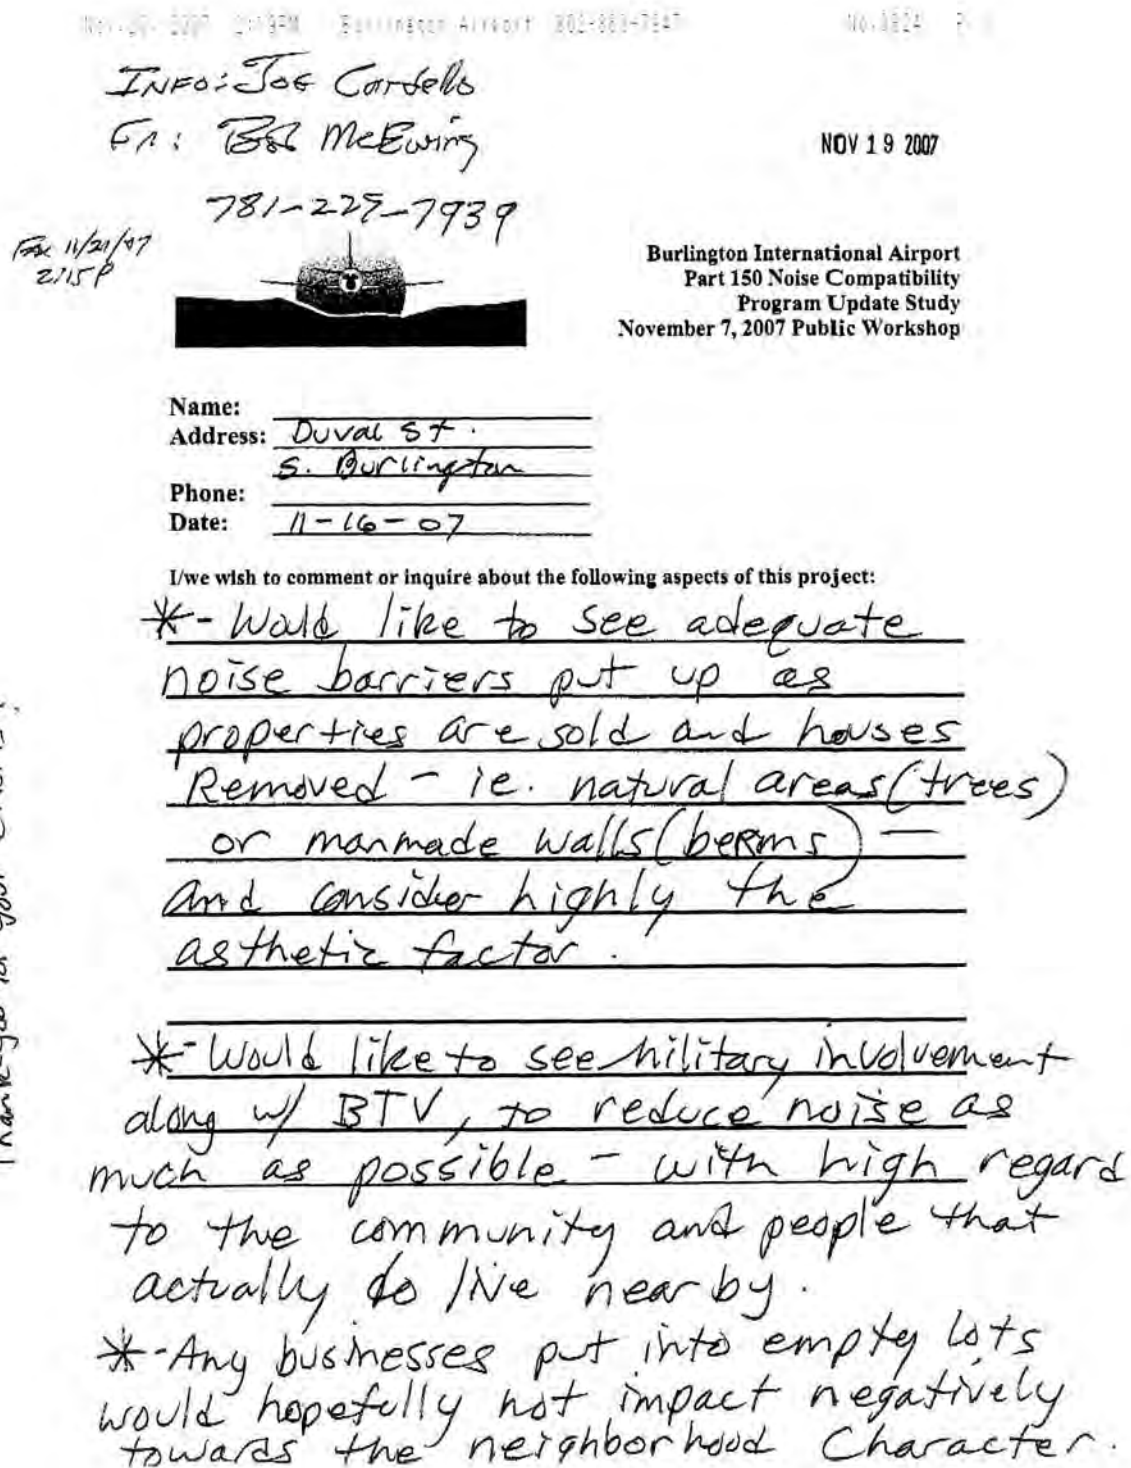 Burlington Airport 802-863-7947
INFO: Joe Cardello
Fr: Bob McEwing
NOV 19 2007
781-229-7939
Fax 11/21/07
2:15P
Burlington International Airport
Part 150 Noise Compatibility
Program Update Study
November 7, 2007 Public Workshop
Name:
Address: Duval St.
S. Burlington
Phone:
Date: 11-16-07
I/we wish to comment or inquire about the following aspects of this project:
*- Would like to see adequate
noise barriers put up as
properties are sold and houses
Removed - ie. natural areas (trees)
or manmade walls (berms) -
and consider highly the
asthetic factor.
*- Would like to see military involvement
along w/ BTV, to reduce noise as
much as possible - with high regard
to the community and people that
actually do live nearby.
*- Any businesses put into empty lots
would hopefully not impact negatively
towards the neighborhood Character.
Thank you for your